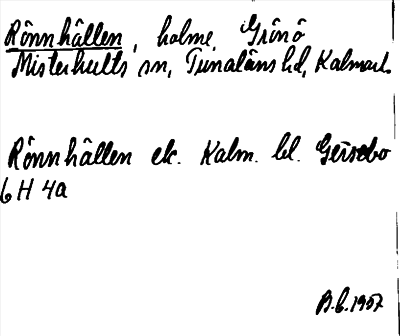 Rönnhällen, holme, Grönö
Misterhults sn, Tunaläns hd, Kalmar l.
Rönnhällen ek. Kalm. bl. Geirsebo
6 H 4a
B.b. 1957